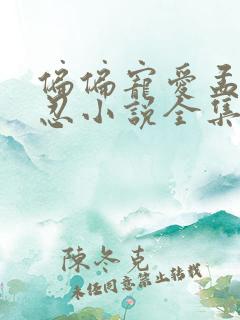 偏偏寵愛孟
忍小說全集
陳冬克
未任同意禁止转载